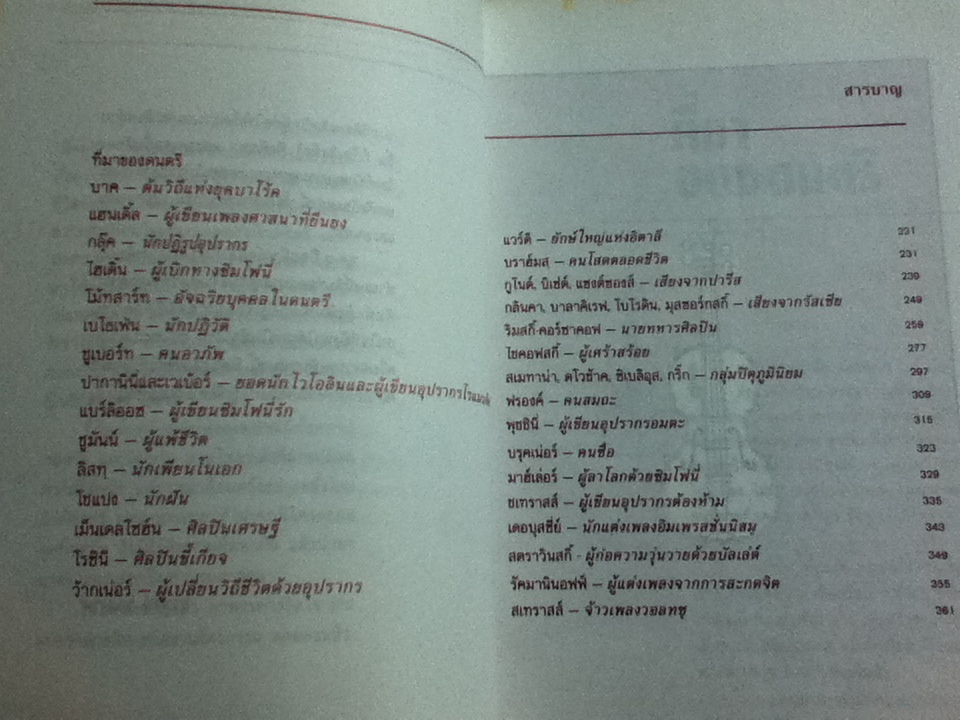 ที่มาของดนตรี
บาค – ต้นวิถีแห่งยุคบาโร้ค
แฮนเดิ้ล – ผู้เขียนเพลงศาสนาที่ยืนยง
กลุ๊ค – นักปฏิรูปอุปรากร
ไฮเดิ้น – ผู้เบิกทางซิมโฟนี่
โม้ทสาร์ท – อัจฉริยบุคคลในดนตรี
เบโธเฟ่น – นักปฏิวัติ
ชูเบอร์ท – คนอาภัพ
ปากานินี่และเวเบ้อร์ – ยอดนักไวโอลินและผู้เขียนอุปรากรโรแมนติค
แบร์ลิออซ – ผู้เขียนซิมโฟนี่รัก
ชูมันน์ – ผู้แพ้ชีวิต
ลิสทฺ – นักเพียนโนเอก
โชแปง – นักฝัน
เม็นเดลโซฮ์น – ศิลปินเศรษฐี
โรซินี่ – ศิลปินขี้เกียจ
ว้ากเน่อร์ – ผู้เปลี่ยนวิถีชีวิตด้วยอุปรากร
สารบาญ
แวร์ดิ – ยักษ์ใหญ่แห่งอิตาลี 221
บราฮ์มสฺ – คนโสดตลอดชีวิต 231
กูโนด์, บิเซ่ต์, แซงต์ซองส์ – เสียงจากปารีส 239
กลินคา, บาลาคิเรฟ, โบโรดิน, มุสซอร์กสกี้ – เสียงจากรัสเซีย 249
ริมสกี้-คอร์ซาคอฟ – นายทหารศิลปิน 259
ไชคอฟสกี้ – ผู้เศร้าสร้อย 277
สเมทาน่า, ดโวช้าค, ซิเบลิอุส, กริ๊ก – กลุ่มปิตุภูมินิยม 297
ฟรองค์ – คนสมถะ 309
พุซซินี่ – ผู้เขียนอุปรากรอมตะ 315
บรุคเน่อร์ – คนซื่อ 323
มาฮ์เล่อร์ – ผู้ลาโลกด้วยซิมโฟนี่ 329
ชเทราสส์ – ผู้เขียนอุปรากรต้องห้าม 335
เดอบุสซี่ย์ – นักแต่งเพลงอิมเพรสชั่นนิสมฺ 343
สตราวินสกี้ - ผู้ก่อความวุ่นวายด้วยบัลเล่ต์ 349
รัคมานินอฟฟ์ – ผู้แต่งเพลงจากการสะกดจิต 355
สเทราสส์ – จ้าวเพลงวอลทซฺ 361